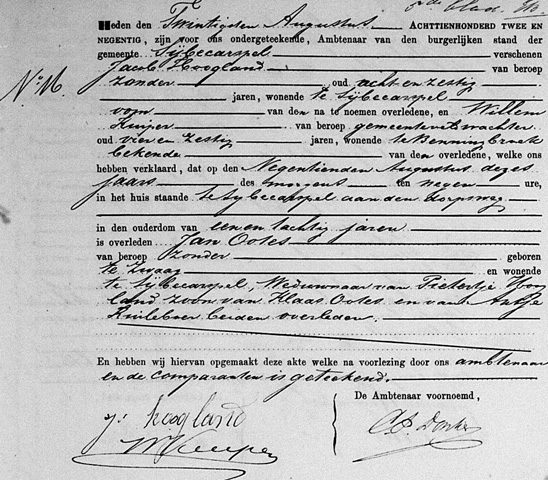 Heden den Twintigsten Augustus ACHTTIENHONDERD TWEE EN
NEGENTIG, zijn voor ons ondergeteekende, Ambtenaar van den burgerlijken stand der
gemeente Sijbecarspel verschenen
Jacob Hoogland van beroep
zonder oud acht en zestig
No 16
jaren, wonende te Sijbecarspel
oom van den na te noemen overledene, en Willem
Kuiper van beroep gemeenteveldwachter
oud vier en zestig jaren, wonende te Benningbroek
bekende van den overledene, welke ons
hebben verklaard, dat op den Negentienden Augustus dezes
jaars des morgens ten negen ure,
in het huis staande te Sijbecarspel aan den dorpsweg
in den ouderdom van een en tachtig jaren
is overleden Jan Ootes
van beroep zonder geboren
te Zwaag en wonende
te Sijbecarspel, Weduwnaar van Pietertje Hoog
land, zoon van Klaas Ootes en van Antje
Kuileboer beiden overleden.
En hebben wij hiervan opgemaakt deze akte welke na voorlezing door ons ambtenaar
en de comparanten is geteekend.
De Ambtenaar voornoemd,
J: Hoogland
W Kuiper
Donker